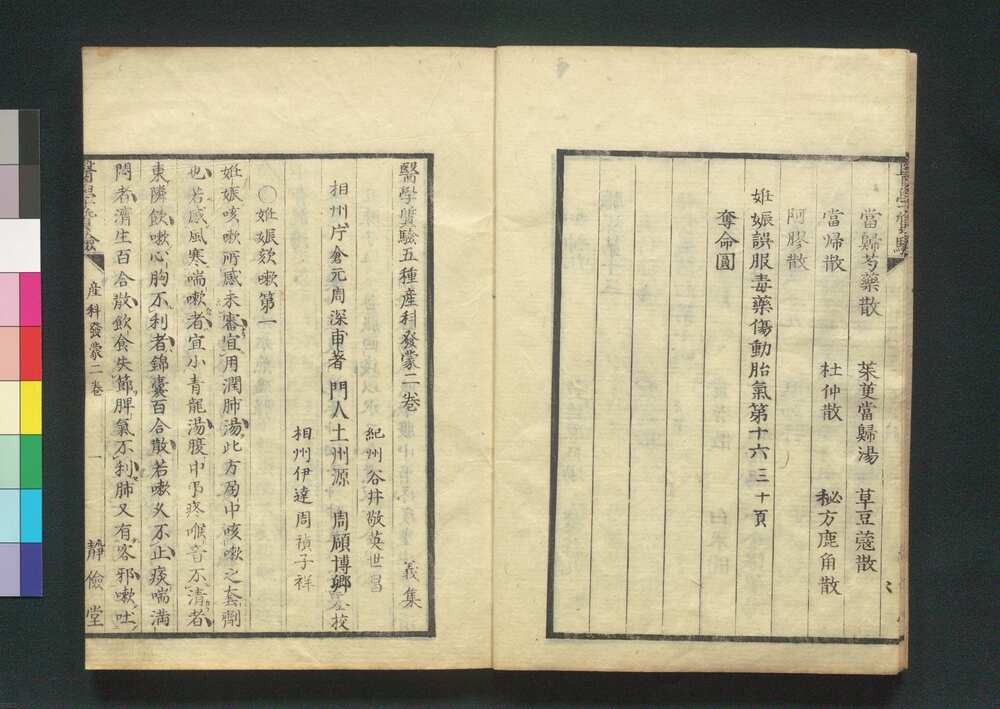 當歸芍藥散　茱萸當歸湯　草豆蔲散
當帰散　杜仲散　秘方鹿角散
阿膠散
妊娠誤服毒藥傷動胎氣第十六 三十頁
奪命圓
醫学質驗五種産科發蒙二巻
相州庁倉元周深甫著 門人
紀州谷井敬英世昌
土州源 周頤博卿
相州伊達周禎子祥
義集
校
○妊娠欬嗽第一
妊娠咳嗽所感未審宜用潤肺湯此方局中咳嗽之套劑
也若感風寒喘嗽者宜小青龍湯腹中疼喉音不清者
東隣飲嗽心胸不利者錦囊百合散若嗽久不止痰喘満
悶者濟生百合散飲食失節脾氣不利肺又有客邪嗽吐
醫學質驗
産科發蒙二巻
一
靜儉堂